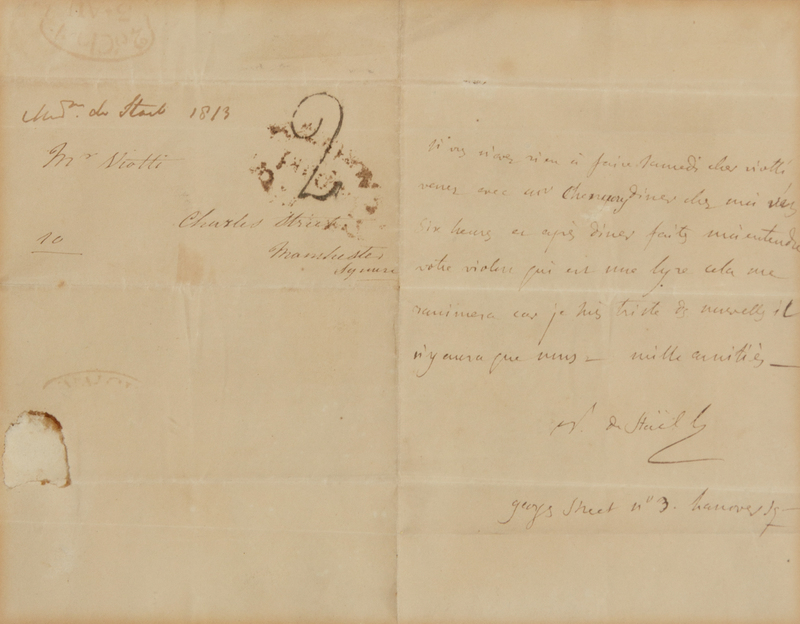 Mdm. de Stael 1813
Mr Viotti
10
Charles Street
Manchester
Square
2
si vous n'avez rien à faire samedi cher viotti
venez avec mr diner chez moi
six heures et après diner faites moi entendre
votre violon qui est une lyre cela me
ranimera car je suis triste de nouvelles il
n'y aura que nous — mille amitiés —
N. de Staël h
george street n° 3. hanover sq—